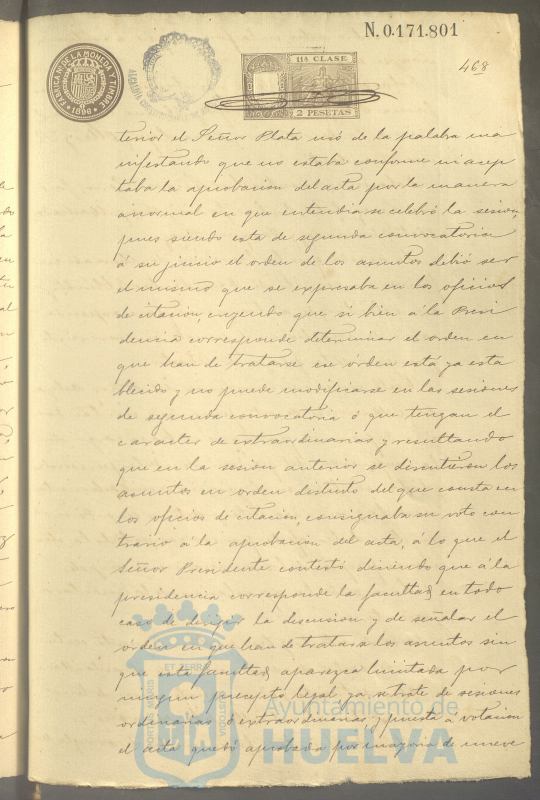 N. 0.171.801
468
FABRICA N. DE LA MONEDA Y TIMBRE
1896
11ª CLASE
2 PESETAS
terior el Señor Plata usó de la palabra ma
nifestando que no estaba conforme ni acep
taba la aprobacion del acta por la manera
anormal en que entendia se celebró la sesion,
pues siendo esta de segunda convocatoria
á su juicio el orden de los asuntos debió ser
el mismo que se expresaba en los oficios
de citacion, creyendo que si bien á la Presi
dencia corresponde determinar el orden en
que han de tratarse ese órden está ya esta
blecido y no puede modificarse en las sesiones
de segunda convocatoria ó que tengan el
caracter de extraordinarias y resultando
que en la sesion anterior se discutieron los
asuntos en orden distinto del que consta en
los oficios de citacion, consignaba su voto con
trario á la aprobacion del acta, á lo que el
Señor Presidente contestó diciendo que á la
presidencia corresponde la facultad en todo
caso de dirigir la discusion y de señalar el
órden en que han de tratarse los asuntos sin
que esta facultad aparezca limitada por
ningun precepto legal ya se trate de sesiones
ordinarias ó extraordinarias; y puesta á votacion
el acta quedó aprobada por mayoria de nueve
PORTUS MARIS
ET TERRE
CUSTODIA
Ayuntamiento de
HUELVA